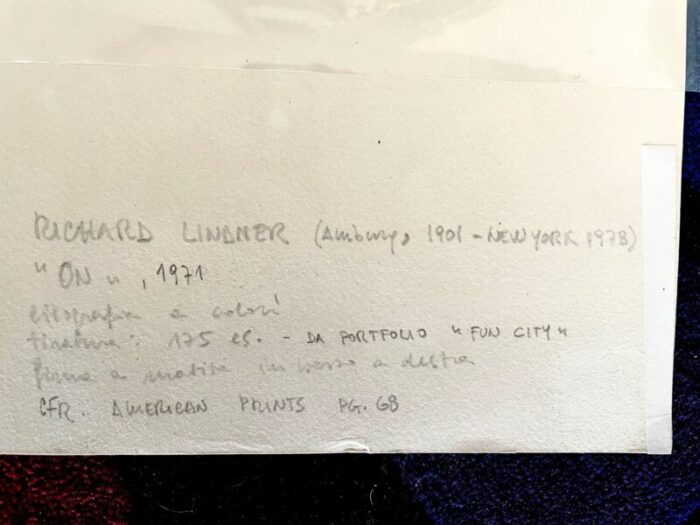 RICHARD LINDNER (Amburgo, 1901 - NEW YORK 1978)
"ON", 1971
litografia a colori
tiratura: 175 es. - DA PORTFOLIO "FUN CITY"
firma a matita in basso a destra
CFR. AMERICAN PRINTS PG. 68